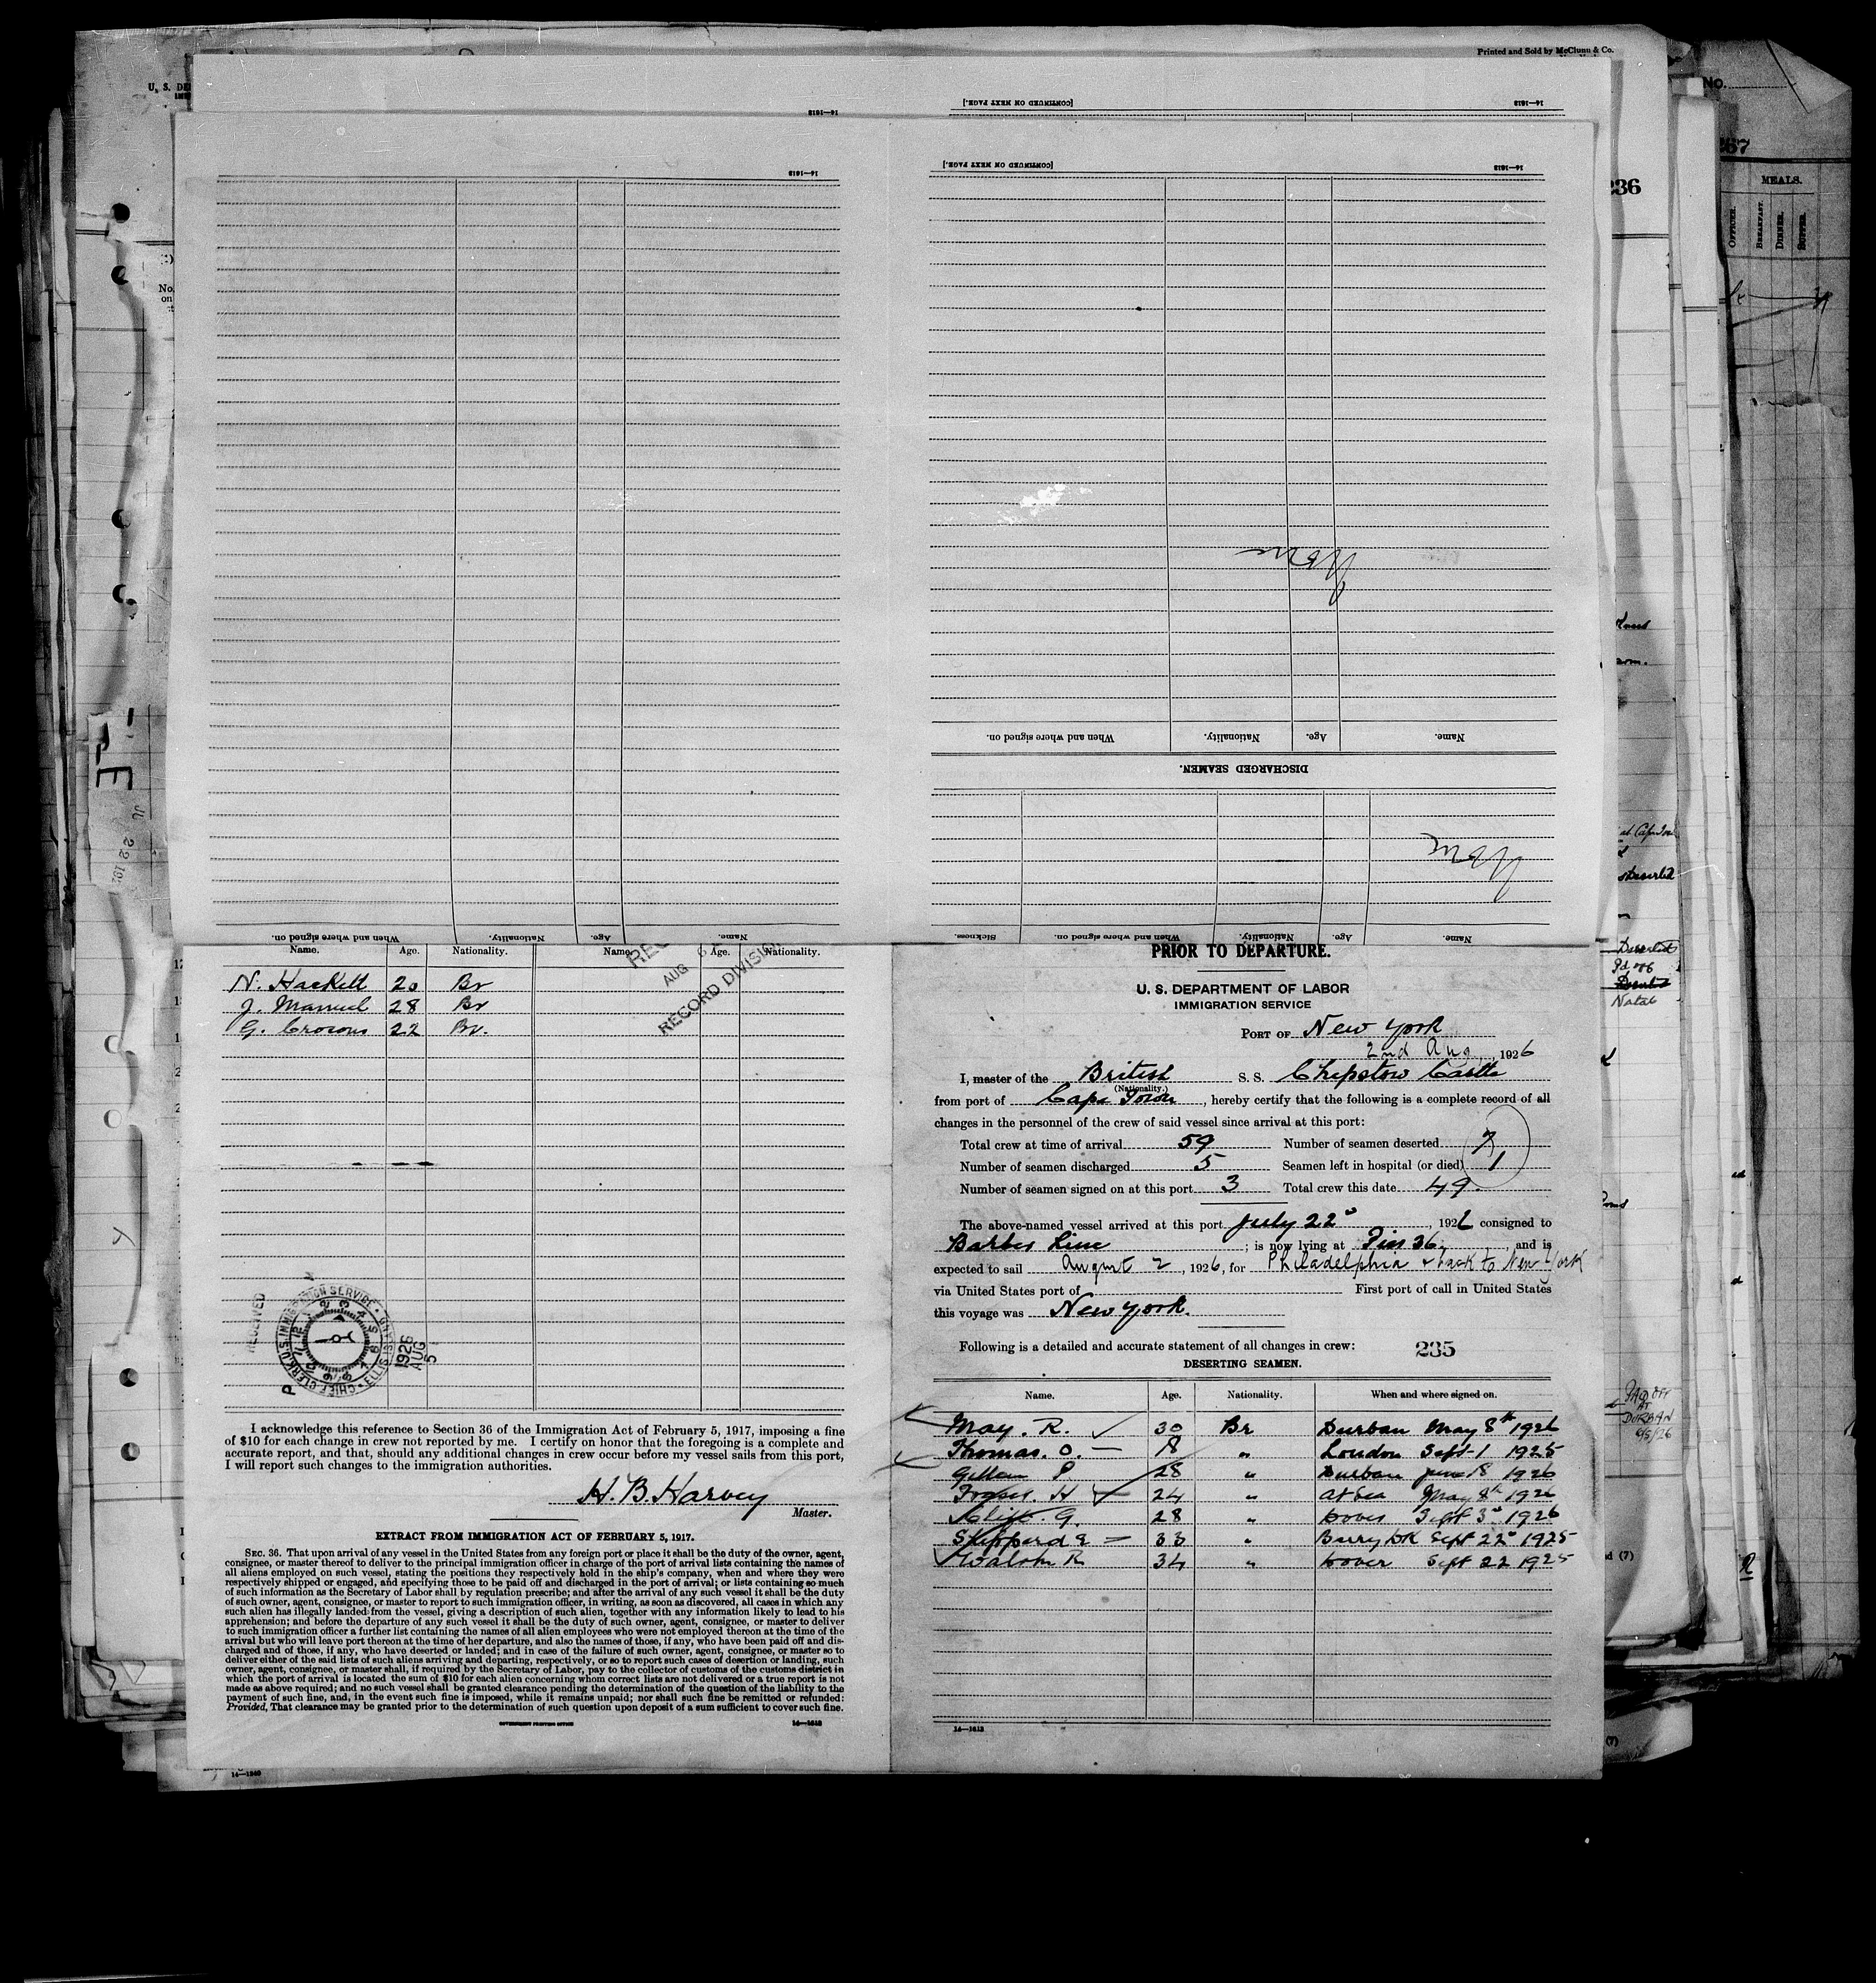 Printed and Sold by McClunn & Co.
U. S. DE
No.
267
MEALS.
OFFICER.
BREAKFAST.
DINNER.
SUPPER.
236
[CONTINUED ON NEXT PAGE.]
14—1613
14—1613
[CONTINUED ON NEXT PAGE.]
14—1613
14—1613
When and where signed on.
Nationality.
Age.
Name.
DISCHARGED SEAMEN.
Sickness.
When and where signed on.
Nationality.
Age.
Name.
When and where signed on.
Nationality.
Age.
Name.
Name. Age. Nationality. Name. Age. Nationality.
N. Hackett 20 Br
J. Manuel 28 Br
G. Crosons 22 Br.
REC
AUG 6
RECORD DIVISION
RECEIVED
CHIEF CLERK U.S. IMMIGRATION SERVICE ELLIS ISLAND
1926
AUG
5
P
I acknowledge this reference to Section 36 of the Immigration Act of February 5, 1917, imposing a fine
of $10 for each change in crew not reported by me. I certify on honor that the foregoing is a complete and
accurate report, and that, should any additional changes in crew occur before my vessel sails from this port,
I will report such changes to the immigration authorities.
H. B. Harvey
Master.
EXTRACT FROM IMMIGRATION ACT OF FEBRUARY 5, 1917.
SEC. 36. That upon arrival of any vessel in the United States from any foreign port or place it shall be the duty of the owner, agent,
consignee, or master thereof to deliver to the principal immigration officer in charge of the port of arrival lists containing the names of
all aliens employed on such vessel, stating the positions they respectively hold in the ship's company, when and where they were
respectively shipped or engaged, and specifying those to be paid off and discharged in the port of arrival; or lists containing so much
of such information as the Secretary of Labor shall by regulation prescribe; and after the arrival of any such vessel it shall be the duty
of such owner, agent, consignee, or master to report to such immigration officer, in writing, as soon as discovered, all cases in which any
such alien has illegally landed from the vessel, giving a description of such alien, together with any information likely to lead to his
apprehension; and before the departure of any such vessel it shall be the duty of such owner, agent, consignee, or master to deliver
to such immigration officer a further list containing the names of all alien employees who were not employed thereon at the time of the
arrival but who will leave port thereon at the time of her departure, and also the names of those, if any, who have been paid off and dis-
charged and of those, if any, who have deserted or landed; and in case of the failure of such owner, agent, consignee, or master so to
deliver either of the said lists of such aliens arriving and departing, respectively, or so to report such cases of desertion or landing, such
owner, agent, consignee, or master shall, if required by the Secretary of Labor, pay to the collector of customs of the customs district in
which the port of arrival is located the sum of $10 for each alien concerning whom correct lists are not delivered or a true report is not
made as above required; and no such vessel shall be granted clearance pending the determination of the question of the liability to the
payment of such fine, and, in the event such fine is imposed, while it remains unpaid; nor shall such fine be remitted or refunded:
Provided, That clearance may be granted prior to the determination of such question upon deposit of a sum sufficient to cover such fine.
GOVERNMENT PRINTING OFFICE
14—1613
14—1240
PRIOR TO DEPARTURE.
U. S. DEPARTMENT OF LABOR
IMMIGRATION SERVICE
PORT OF New York
2nd Aug, 1926
I, master of the British S. S. Chepstow Castle
(Nationality.)
from port of Cape Town, hereby certify that the following is a complete record of all
changes in the personnel of the crew of said vessel since arrival at this port:
Total crew at time of arrival 59 Number of seamen deserted 7
Number of seamen discharged 5 Seamen left in hospital (or died) 1
Number of seamen signed on at this port 3 Total crew this date 49.
The above-named vessel arrived at this port July 22d, 1926 consigned to
Barber Line; is now lying at Pier 36, and is
expected to sail August 2, 1926, for Philadelphia & back to New York
via United States port of First port of call in United States
this voyage was New York.
Following is a detailed and accurate statement of all changes in crew: 235
DESERTING SEAMEN.
Name. Age. Nationality. When and where signed on.
May. R. 30 Br Durban May 8th 1926
Thomas. O. 18 " London Sept 1 1925
Gillan P 28 " Durban June 18 1926
Fraser. H 24 " At Sea May 8th 1926
Clift. G. 28 " Dover Sept 3d 1926
Shepperd E 33 " Barry Dk Sept 22d 1925
Walsh K 34 " Dover Sept 22 1925
14—1613
PAID OFF
AT
DURBAN